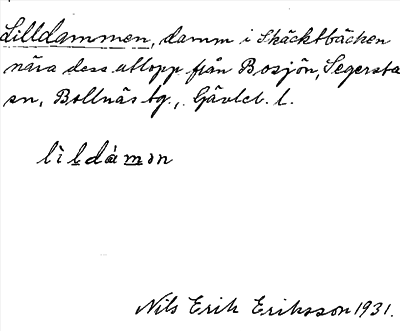 Lilldammen, damm i Skäcktbäcken
nära dess utlopp från Bosjön, Segersta
sn, Bollnäs tg., Gävleb. l.
lìldám̲ən
Nils Erik Eriksson 1931.